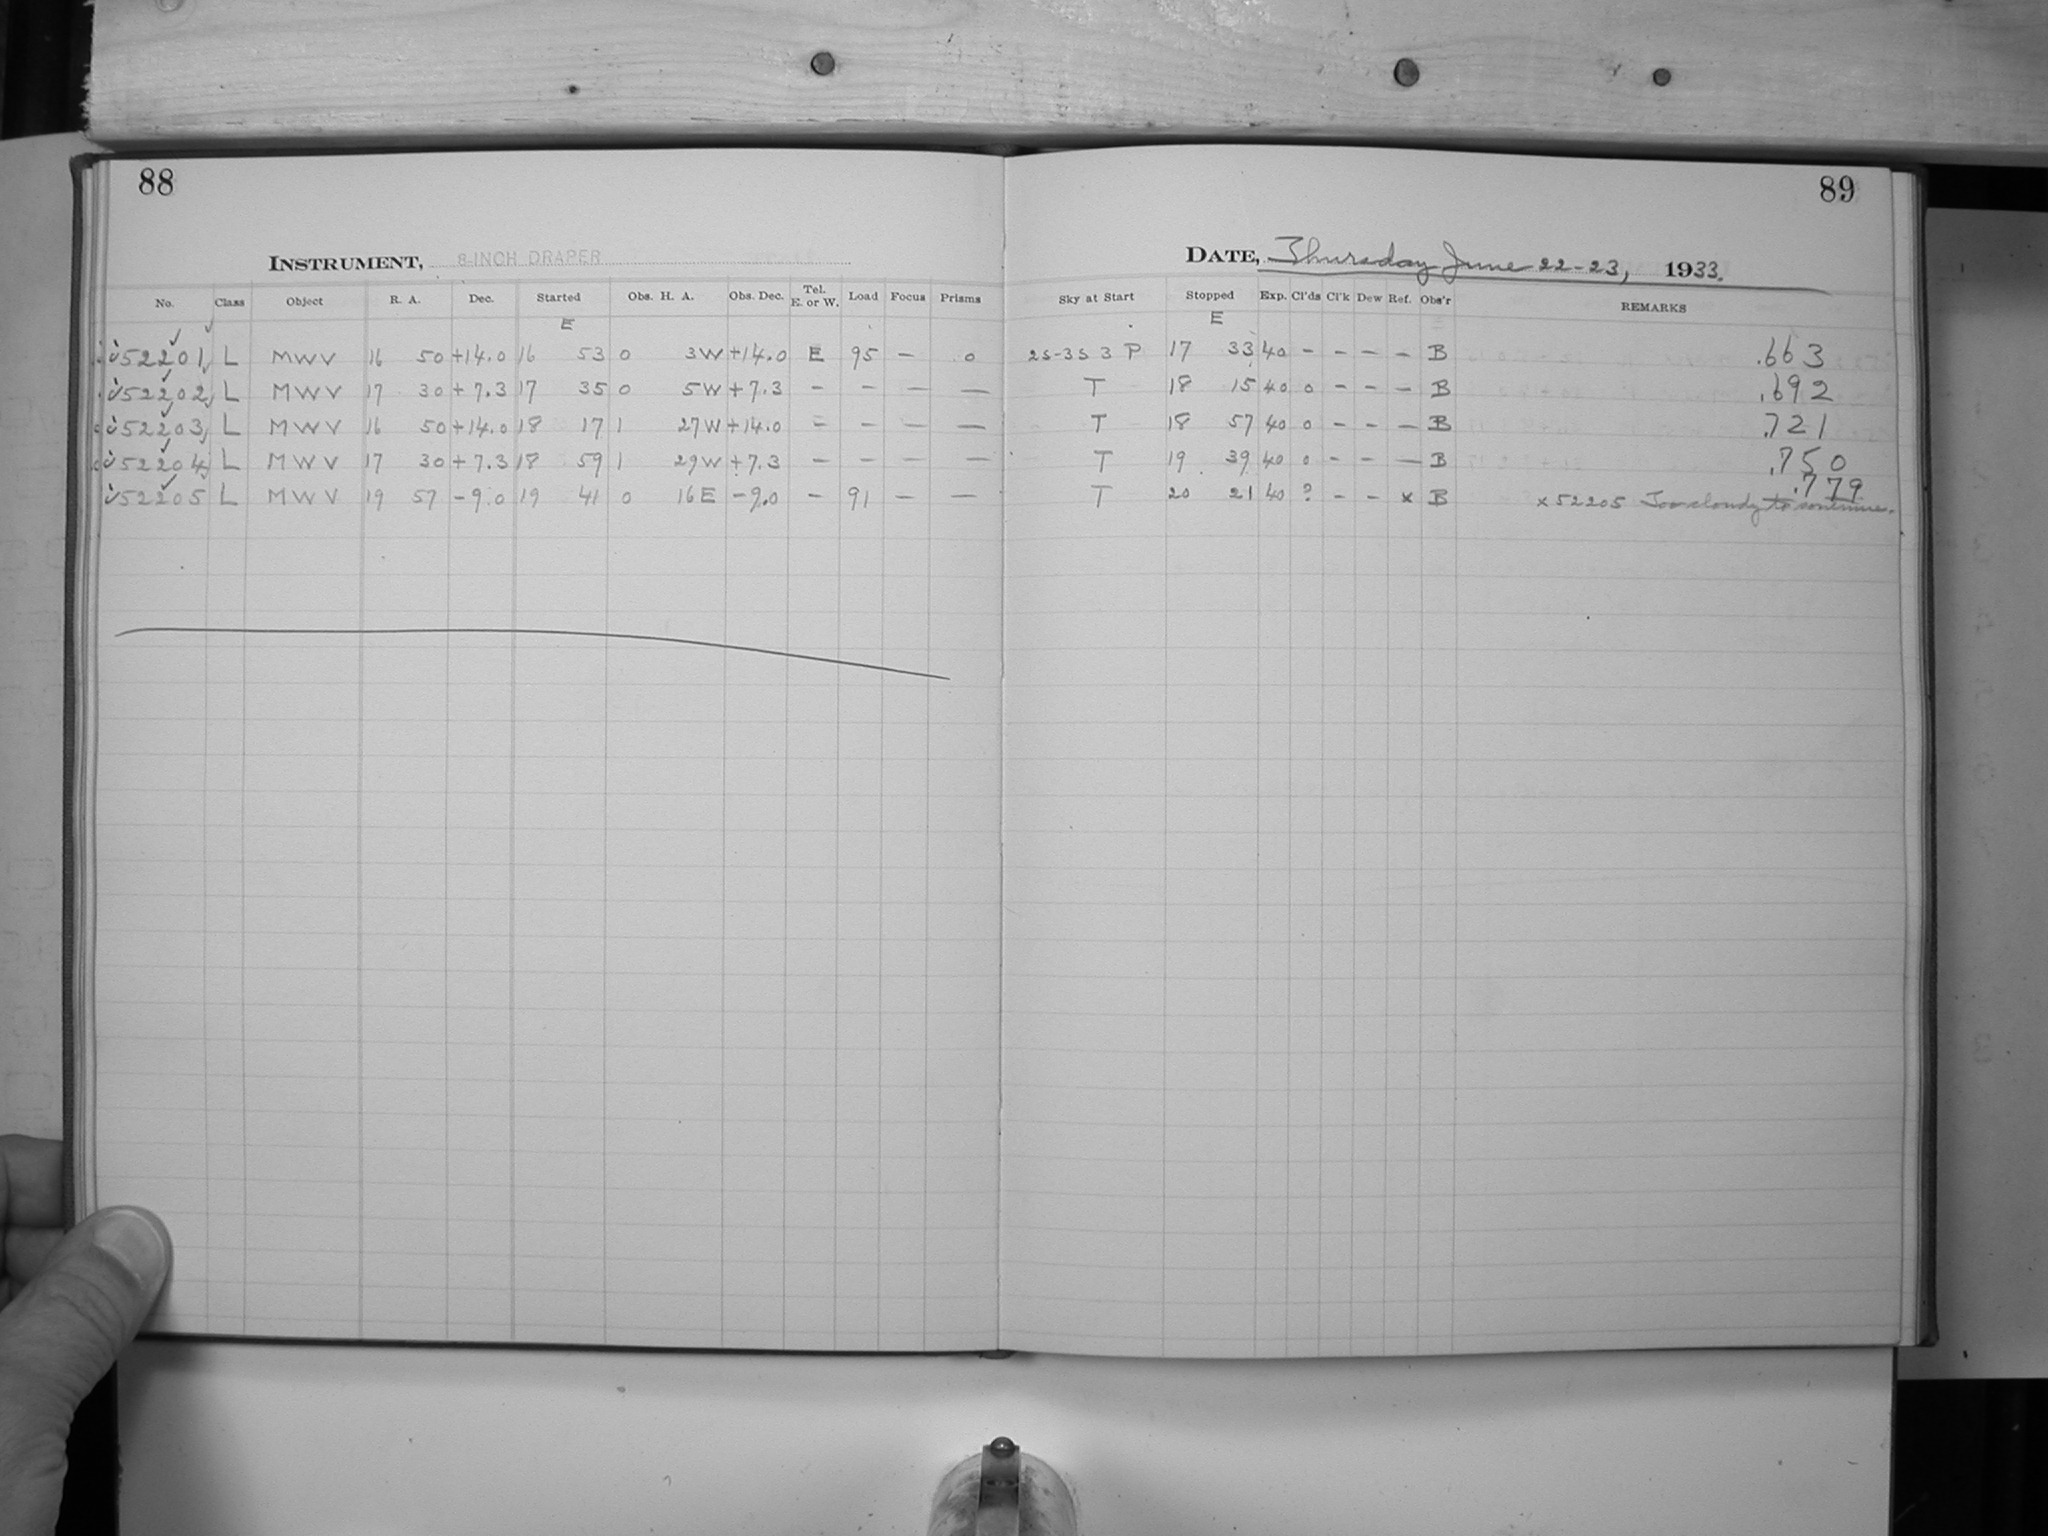 88
INSTRUMENT, 8-INCH DRAPER
No. Class Object R. A. Dec. Started Obs. H. A. Obs. Dec. Tel. E. or W. Load Focus Prisms
E
52201 L MWV 16 50 +14.0 16 53 0 3W +14.0 E 95 – 0
52202 L MWV 17 30 +7.3 17 35 0 5W +7.3 – – – –
52203 L MWV 16 50 +14.0 18 17 1 27W +14.0 – – – –
52204 L MWV 17 30 +7.3 18 59 1 29W +7.3 – – – –
52205 L MWV 19 57 -9.0 19 41 0 16E -9.0 – 91 – –
89
DATE, Thursday June 22-23, 1933.
Sky at Start Stopped Exp. Cl'ds Cl'k Dew Ref. Obs'r REMARKS
E
2S-3S 3 P 17 33 40 – – – – B .663
T 18 15 40 0 – – – B .692
T 18 57 40 0 – – – B .721
T 19 39 40 0 – – – B .750
T 20 21 40 ? – – x B .779
x52205 Too cloudy to continue.